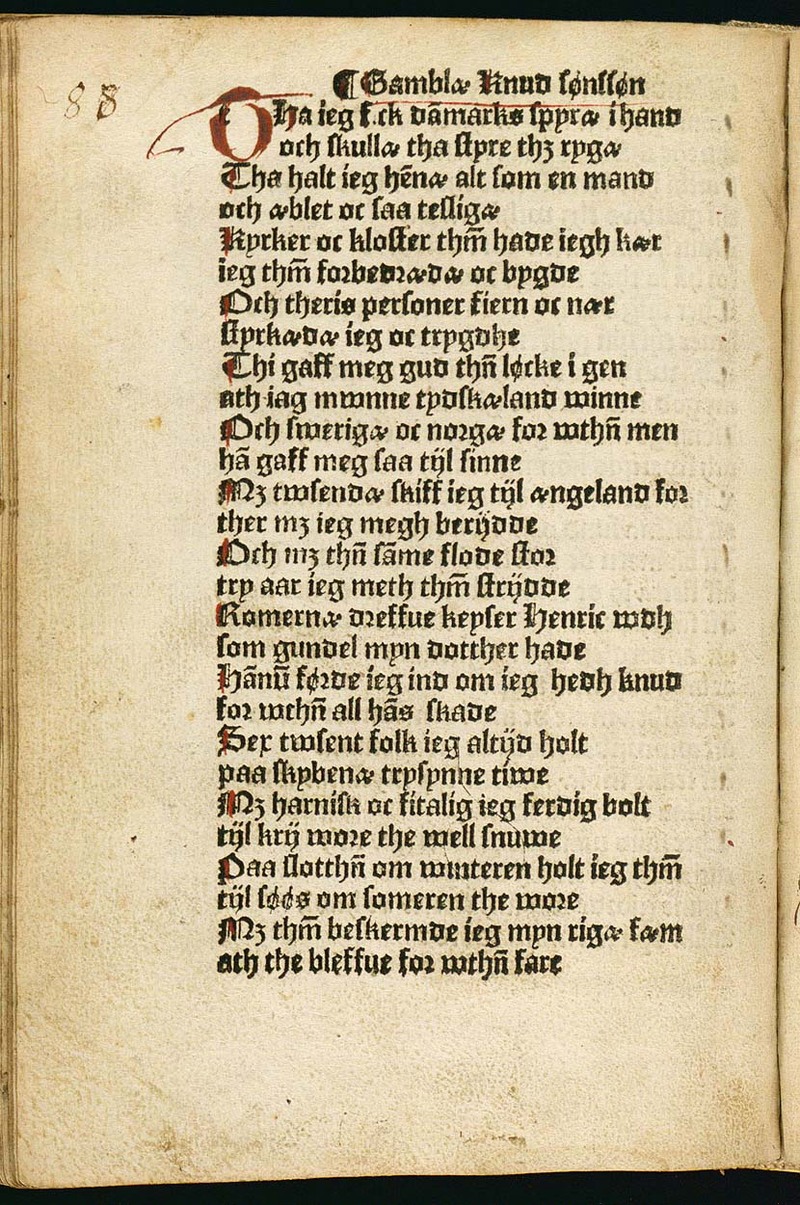 88
¶ Gamblæ Knud sønssøn
THa ieg f.ck dāmarks spyræ i hand
och skullæ tha styre thꝫ rygæ
Tha halt ieg hēnæ alt som en mand
och æblet oc saa tesligæ
Kyrker oc kloster thm̄ hade iegh kær
ieg thm̄ forbedrædæ oc bygde
Och theris personer fiern oc nær
styrkædæ ieg oc trygdhe
Thi gaff meg gud thn̄ løcke i gen
ath iag mwnne tydskæland winne
Och swerigæ oc norgæ for wthn̄ men
hā gaff meg saa tijl sinne
Mꝫ twsendæ skiff ieg tijl ængeland for
ther mꝫ ieg megh berijdde
Och mꝫ thn̄ sāme flode stor
try aar ieg meth thm̄ strijdde
Romernæ dreffue keyser Henric wdh
som gundel myn dotther hade
Hānūførde ieg ind om ieg hedh knud
for wthn̄ all hās skade
Sex twsent folk ieg altijd holt
paa skybenæ trysynne tiwe
Mꝫ harnisk oc fitalig ieg ferdig bolt
tijl krij wore the well snuwe
Paa slotthn̄ om winteren holt ieg thm̄
tijl søøs om someren the wore
Mꝫ thm̄ beskermde ieg myn rigæ fæm
ath the bleffue for wthn̄ fare